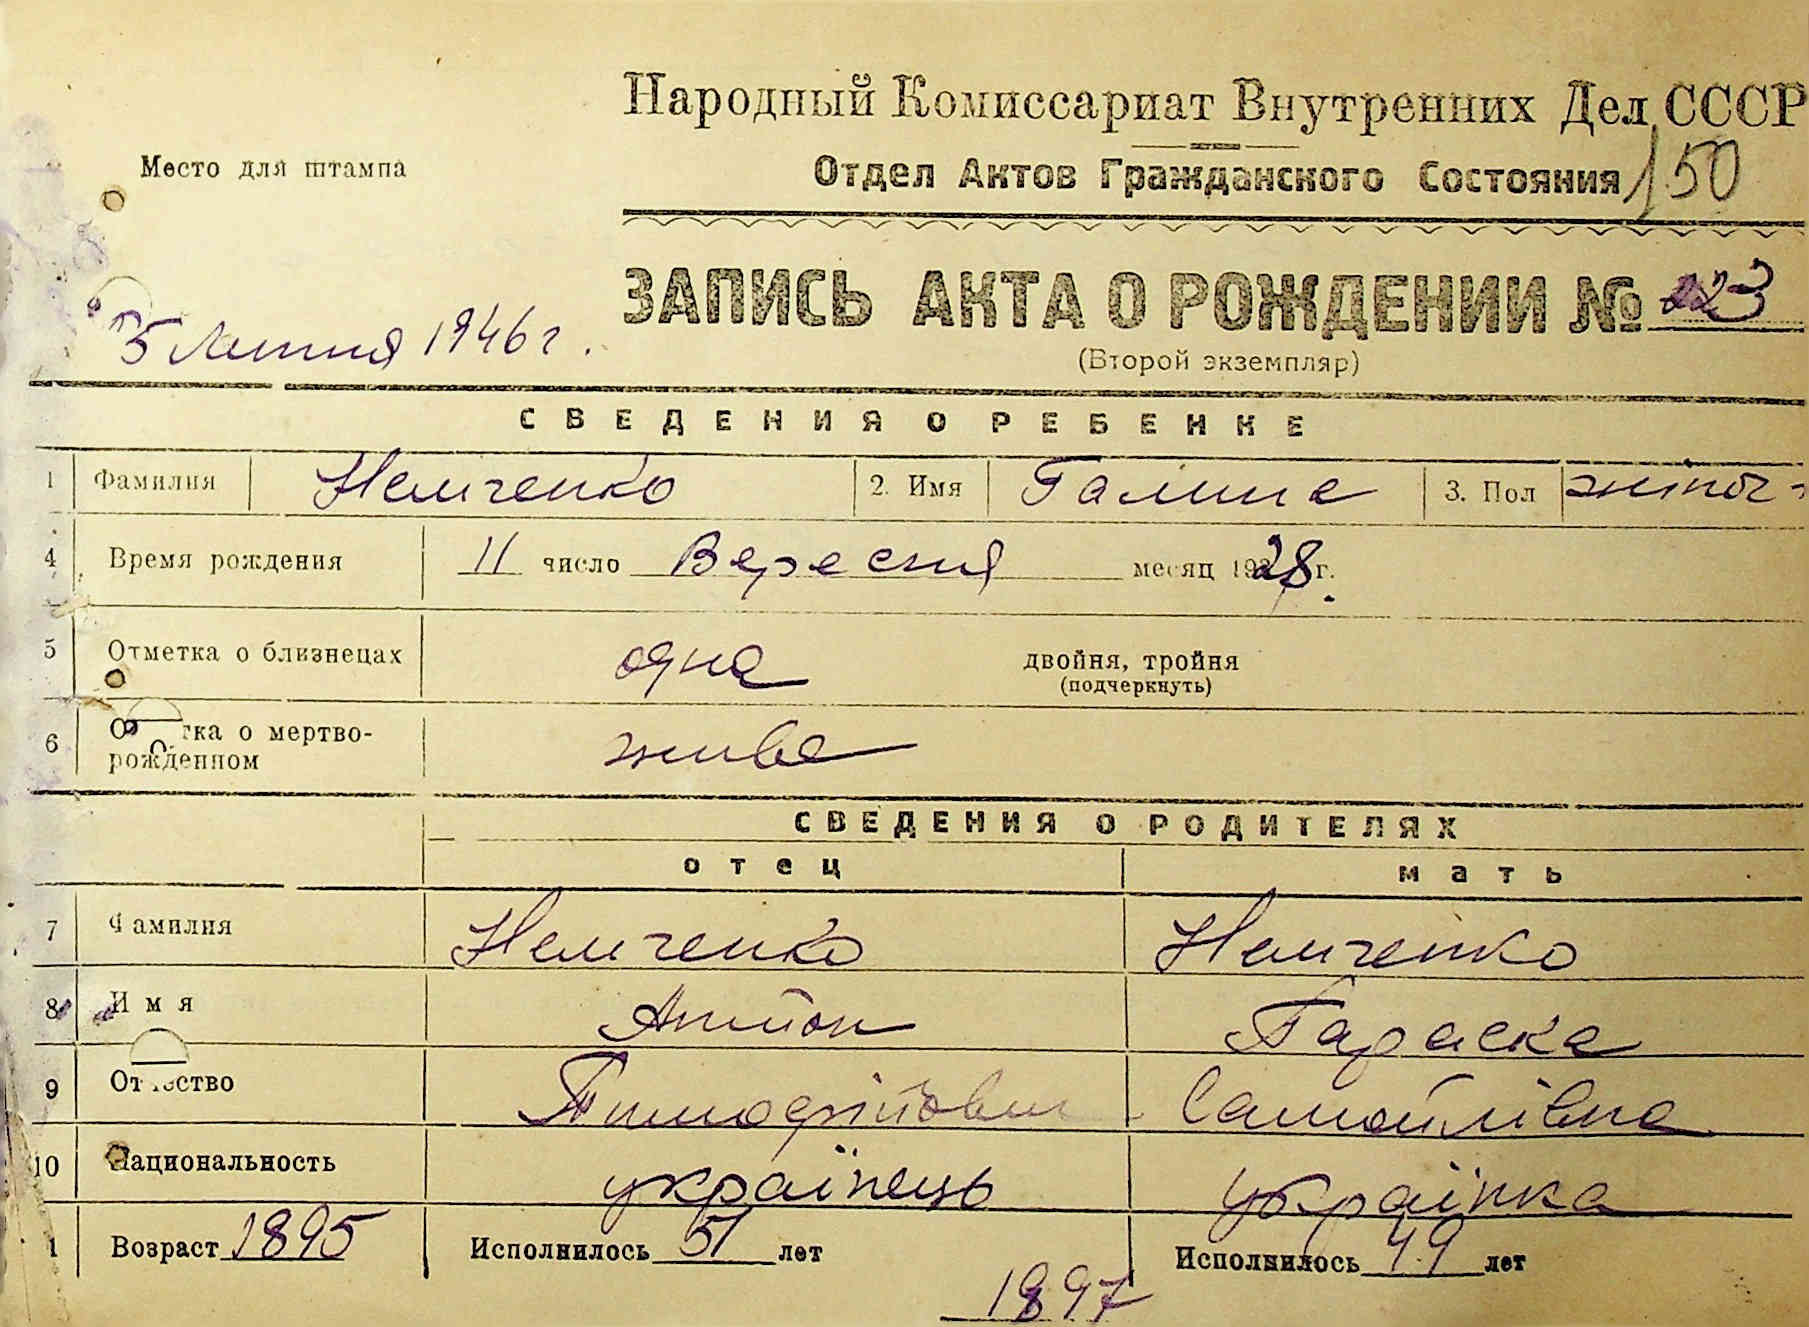 Народный Комиссариат Внутренних Дел СССР
Место для штампа
Отдел Актов Гражданского Состояния 150
ЗАПИСЬ АКТА О РОЖДЕНИИ № 223
5 Липня 1946 г.
(Второй экземпляр)
СВЕДЕНИЯ О РЕБЕНКЕ
1 Фамилия Немченко 2. Имя Галина 3. Пол жіноч-
4 Время рождения 11 число Вересня месяц 1928 г.
5 Отметка о близнецах одна двойня, тройня
(подчеркнуть)
6 О тка о мертво-
рожденном жива
СВЕДЕНИЯ О РОДИТЕЛЯХ
отец мать
7 Фамилия Немченко Немченко
8 Имя Антон Параска
9 От ество Тимофійович Самойлівна
10 Национальность українець українка
1 Возраст 1895 Исполнилось 51 лет Исполнилось 49 лет
1897